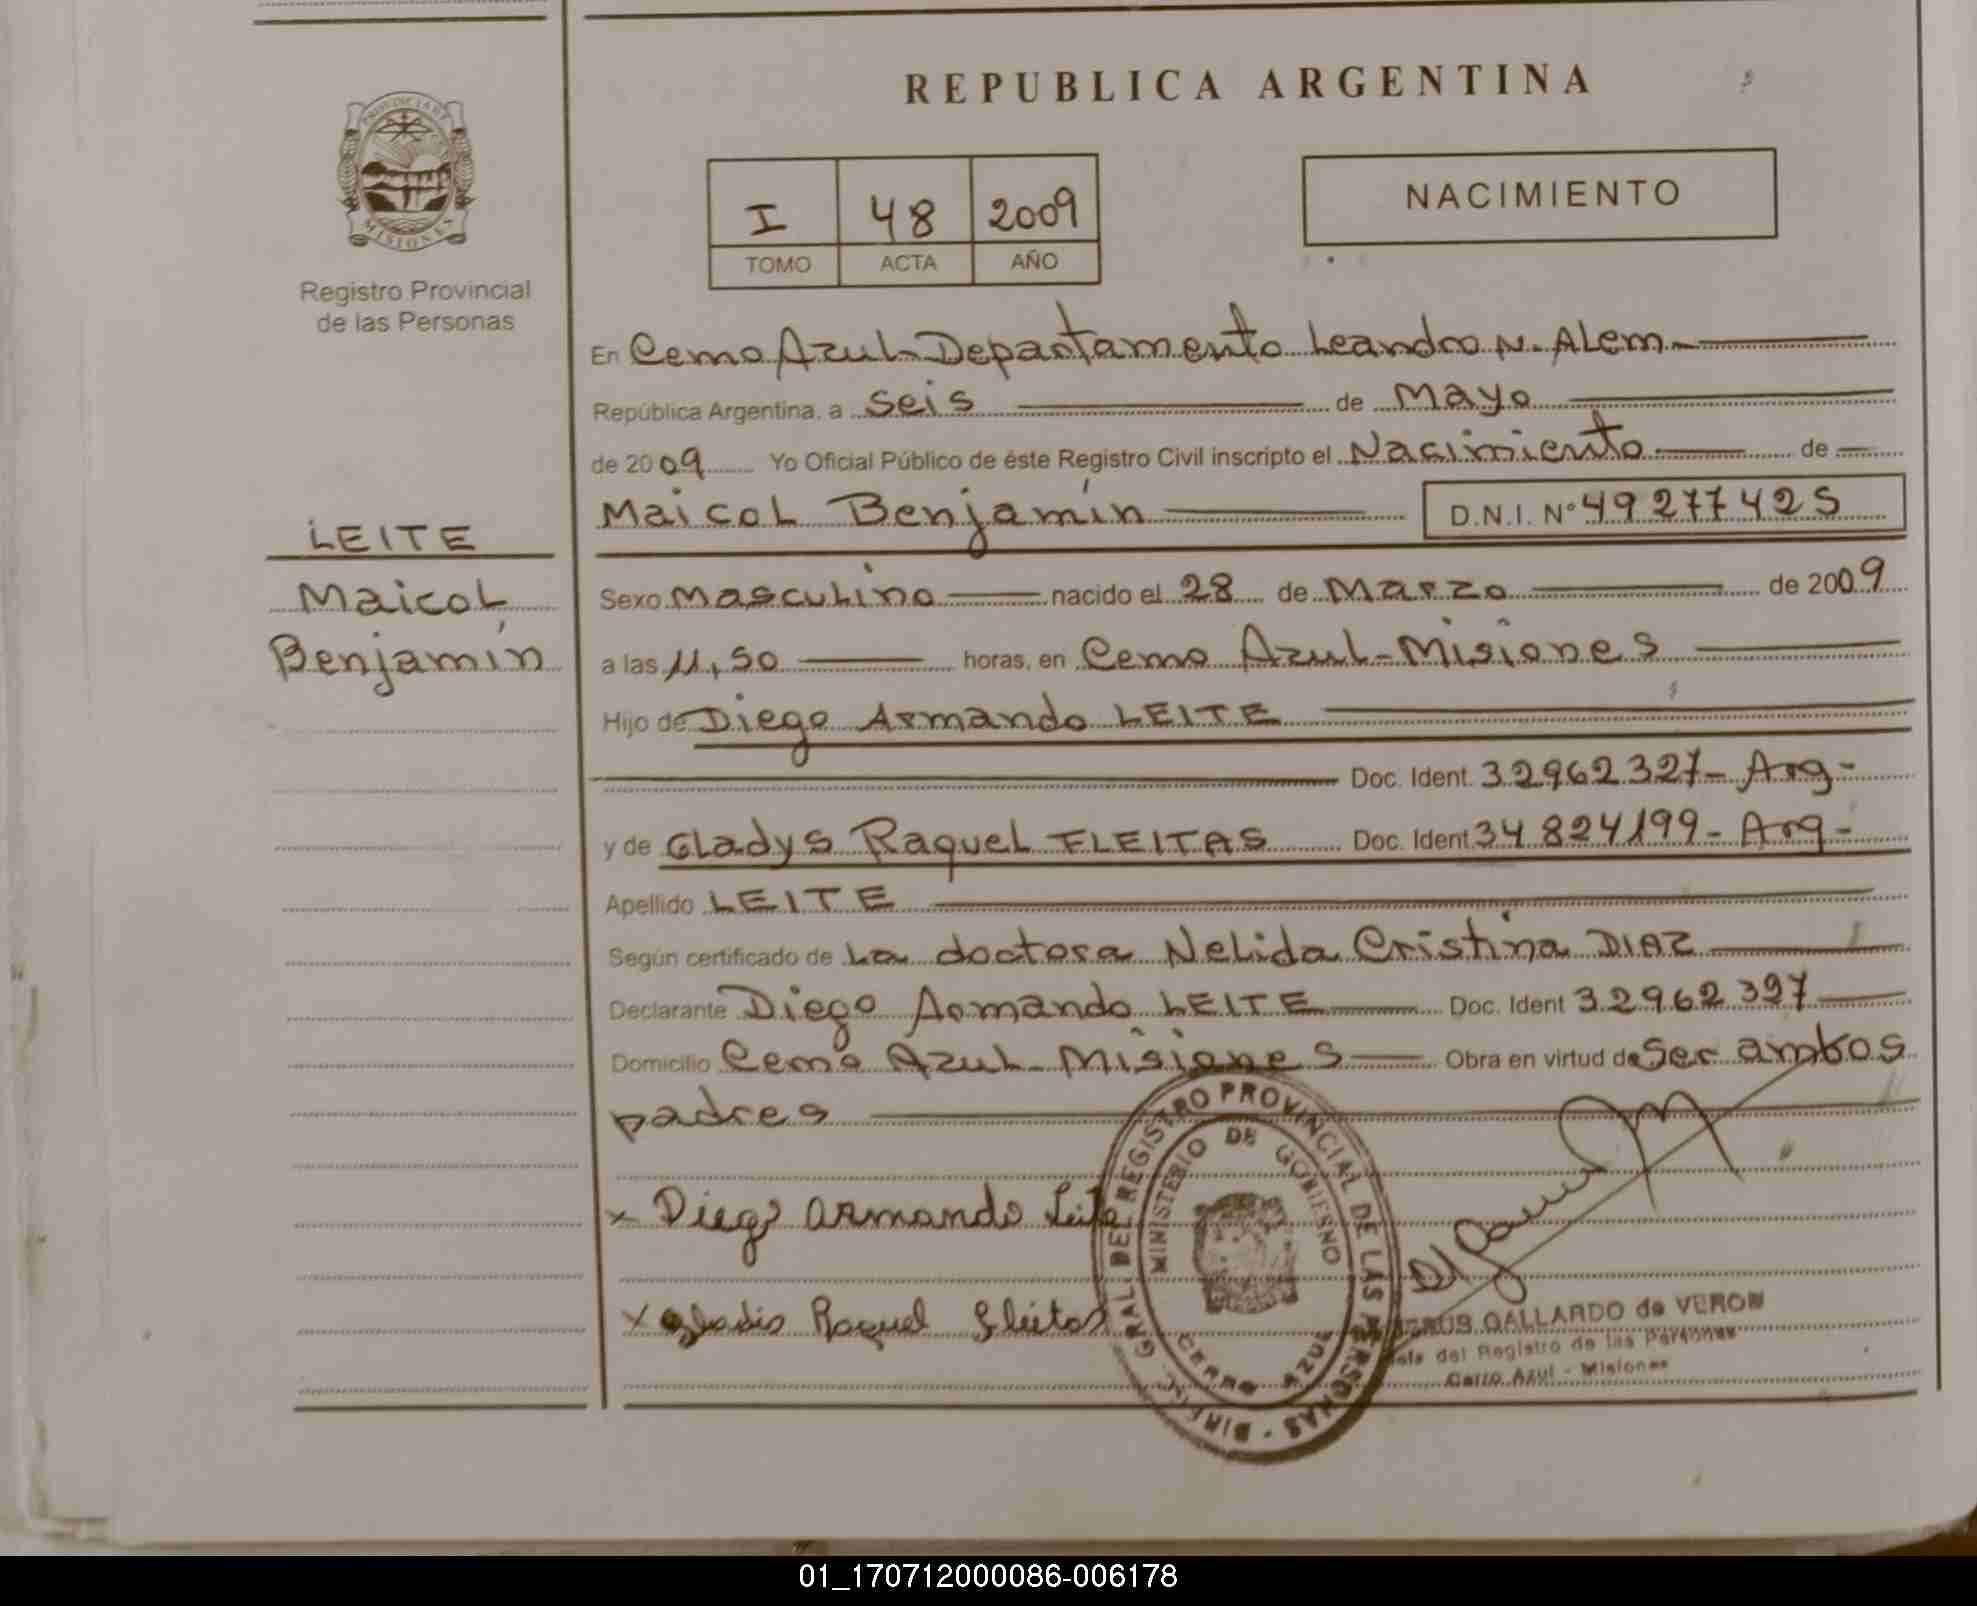 REPUBLICA ARGENTINA
PROVINCIA DE
MISIONES
Registro Provincial
de las Personas
I 48 2009
TOMO ACTA AÑO
NACIMIENTO
LEITE
Maicol
Benjamín
En Cerro Azul-Departamento Leandro N. Alem-
República Argentina, a seis de Mayo
de 2009 Yo Oficial Público de éste Registro Civil inscripto el Nacimiento de
Maicol Benjamín D.N.I. N° 49277425
Sexo Masculino nacido el 28 de Marzo de 2009
a las 11,50 horas, en Cerro Azul-Misiones
Hijo de Diego Armando LEITE
Doc. Ident. 32962327- Arg-
y de Gladys Raquel FLEITAS Doc. Ident. 34824199- Arg-
Apellido LEITE
Según certificado de La doctora Nelida Cristina DIAZ
Declarante Diego Armando LEITE Doc. Ident 32962327
Domicilio Cerro Azul-Misiones Obra en virtud de Ser ambos
padres
x Diego Armando Leite
x Gladis Raquel Fleitas
DIREC. GRAL. DEL REGISTRO PROVINCIAL DE LAS PERSONAS
MINISTERIO DE GOBIERNO
CERRO AZUL
GALLARDO de VERON
del Registro de las Personas
Cerro Azul - Misiones
01_170712000086-006178